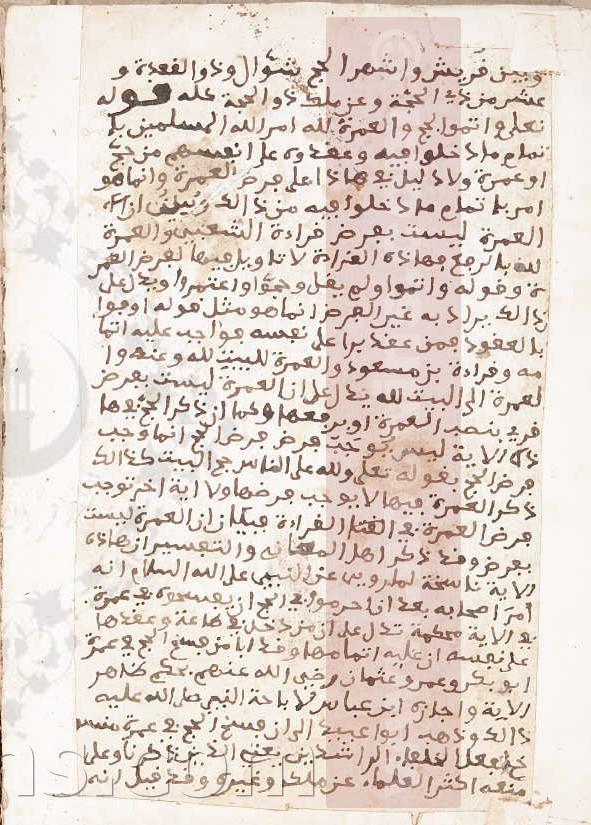 وبين قريش واشهر الحج شوال وذو القعدة و
عشر من ذي الحجة وعن ملك ذو الحجة كله قوله
تعلى واتموا الحج والعمرة لله امر الله المسلمين با
تمام ما دخلوا فيه وعقدوه على انفسهم من حج
او عمرة ولا دليل في هاذا على فرض العمرة وانما هو
امر باتمام ما دخلوا فيه من ذالك ويبين ان
العمرة ليست بفرض قراءة الشعبي والعمرة
لله بالرفع فهاذه القراءة لا تاويل فيها لفرض العمر
ة وقوله واتموا ولم يقل وحجوا واعتمروا يدل على
ذالك يراد به غير الفرض انما هو مثل قوله اوفوا
بالعقود فمن عقد برا على نفسه فواجب عليه اتما
مه وقراءة بن مسعود والعمرة للبيت لله وعنه وا
لعمرة الى البيت لله يدل على ان العمرة ليست بفرض
فرئ بنصب العمرة او برفعها وكما ان ذكر الحج في ها
ذه الاية ليس يوجب فرض الحج انما وجب
فرض الحج بقوله تعلى ولله على الناس حج البيت كذالك
ذكر العمرة فيها لا يوجب فرضها ولا اية اخر توجب
فرض العمرة في القراءة فبان ان العمرة ليست
بفرض وقد ذكر اهل المعانه والتفسير ان هاذه
الاية ناسخة لما روي عن النبي عليه السلام انه
امر اصحابه بعد ان احرموا في الحج ان يفسخوه في عمرة
في الاية محكمة تدل على ان من دخل في طاعة وعقدها
على نفسه ان عليه اتمامها وقد ابا من فسخ الحج في عمرة
ابو بكر وعمر وعثمان رضي الله عنهم بحكم ظاهر
الاية واجازه ابن عباس لاباحة النبي صلى الله عليه
ذالك وذهب ابوا عبيد الى ان فسخ الحج في عمرة منسو
خ بفعل الخلفاء الراشدين يعني الذين ذكرنا وعلى
منعه اكثر العلماء عن ملك وغيره وقد قيل انه